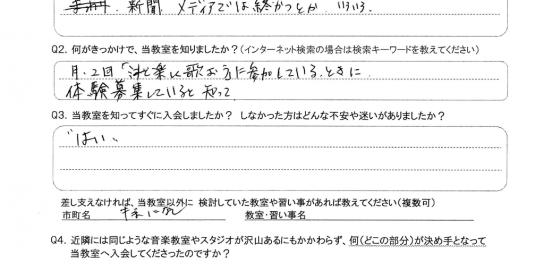 新聞 メディアでは 終かつとか いろいろ.
Q2. 何がきっかけで、当教室を知りましたか？(インターネット検索の場合は検索キーワードを教えてください)
月.2回「 と楽しく歌お 方に参加しているときに.
体験募集していると知って
Q3. 当教室を知ってすぐに入会しましたか？ しなかった方はどんな不安や迷いがありましたか？
はい、
差し支えなければ、当教室以外に 検討していた教室や習い事があれば教えてください(複数可)
市町名 特になし 教室・習い事名
Q4. 近隣には同じような音楽教室やスタジオが沢山あるにもかかわらず、何(どこの部分)が決め手となって
当教室へ入会してくださったのですか？